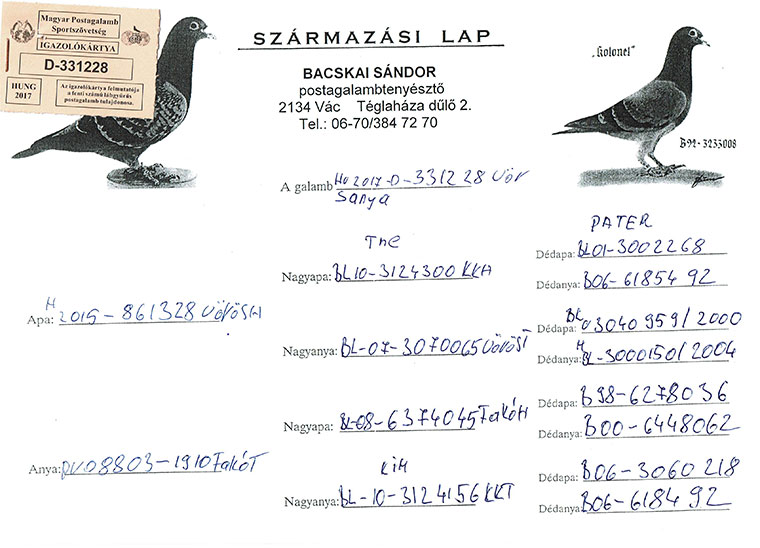 Magyar Postagalamb
Sportszövetség
IGAZOLÓKÁRTYA
D-331228
HUNG
2017
Az igazolókártya felmutatója
a fenti számú lábgyűrűs
postagalamb tulajdonosa.
SZÁRMAZÁSI LAP
BACSKAI SÁNDOR
postagalambtenyésztő
2134 Vác Téglaháza dűlő 2.
Tel.: 06-70/384 72 70
"Kolonel"
B92-3233008
A galamb HU 2017-D-331228 Vör
Sanya
The
Nagyapa: BL10-3124300 KKH
PATER
Dédapa: BL01-3002268
Dédanya: B06-6185492
Apa: H 2015-861328 VÖRÖSH
Nagyanya: BL-07-3070065 VÖRÖST
Dédapa: BL 03040959/2000
Dédanya: H BL-3000150/2004
Nagyapa: BL-08-6374045 FakóH
Dédapa: B98-6278036
Dédanya: B00-6448062
Anya: DV08803-1910 FakóT
KIH
Nagyanya: BL-10-3124156 KKT
Dédapa: B06-3060218
Dédanya: B06-618492